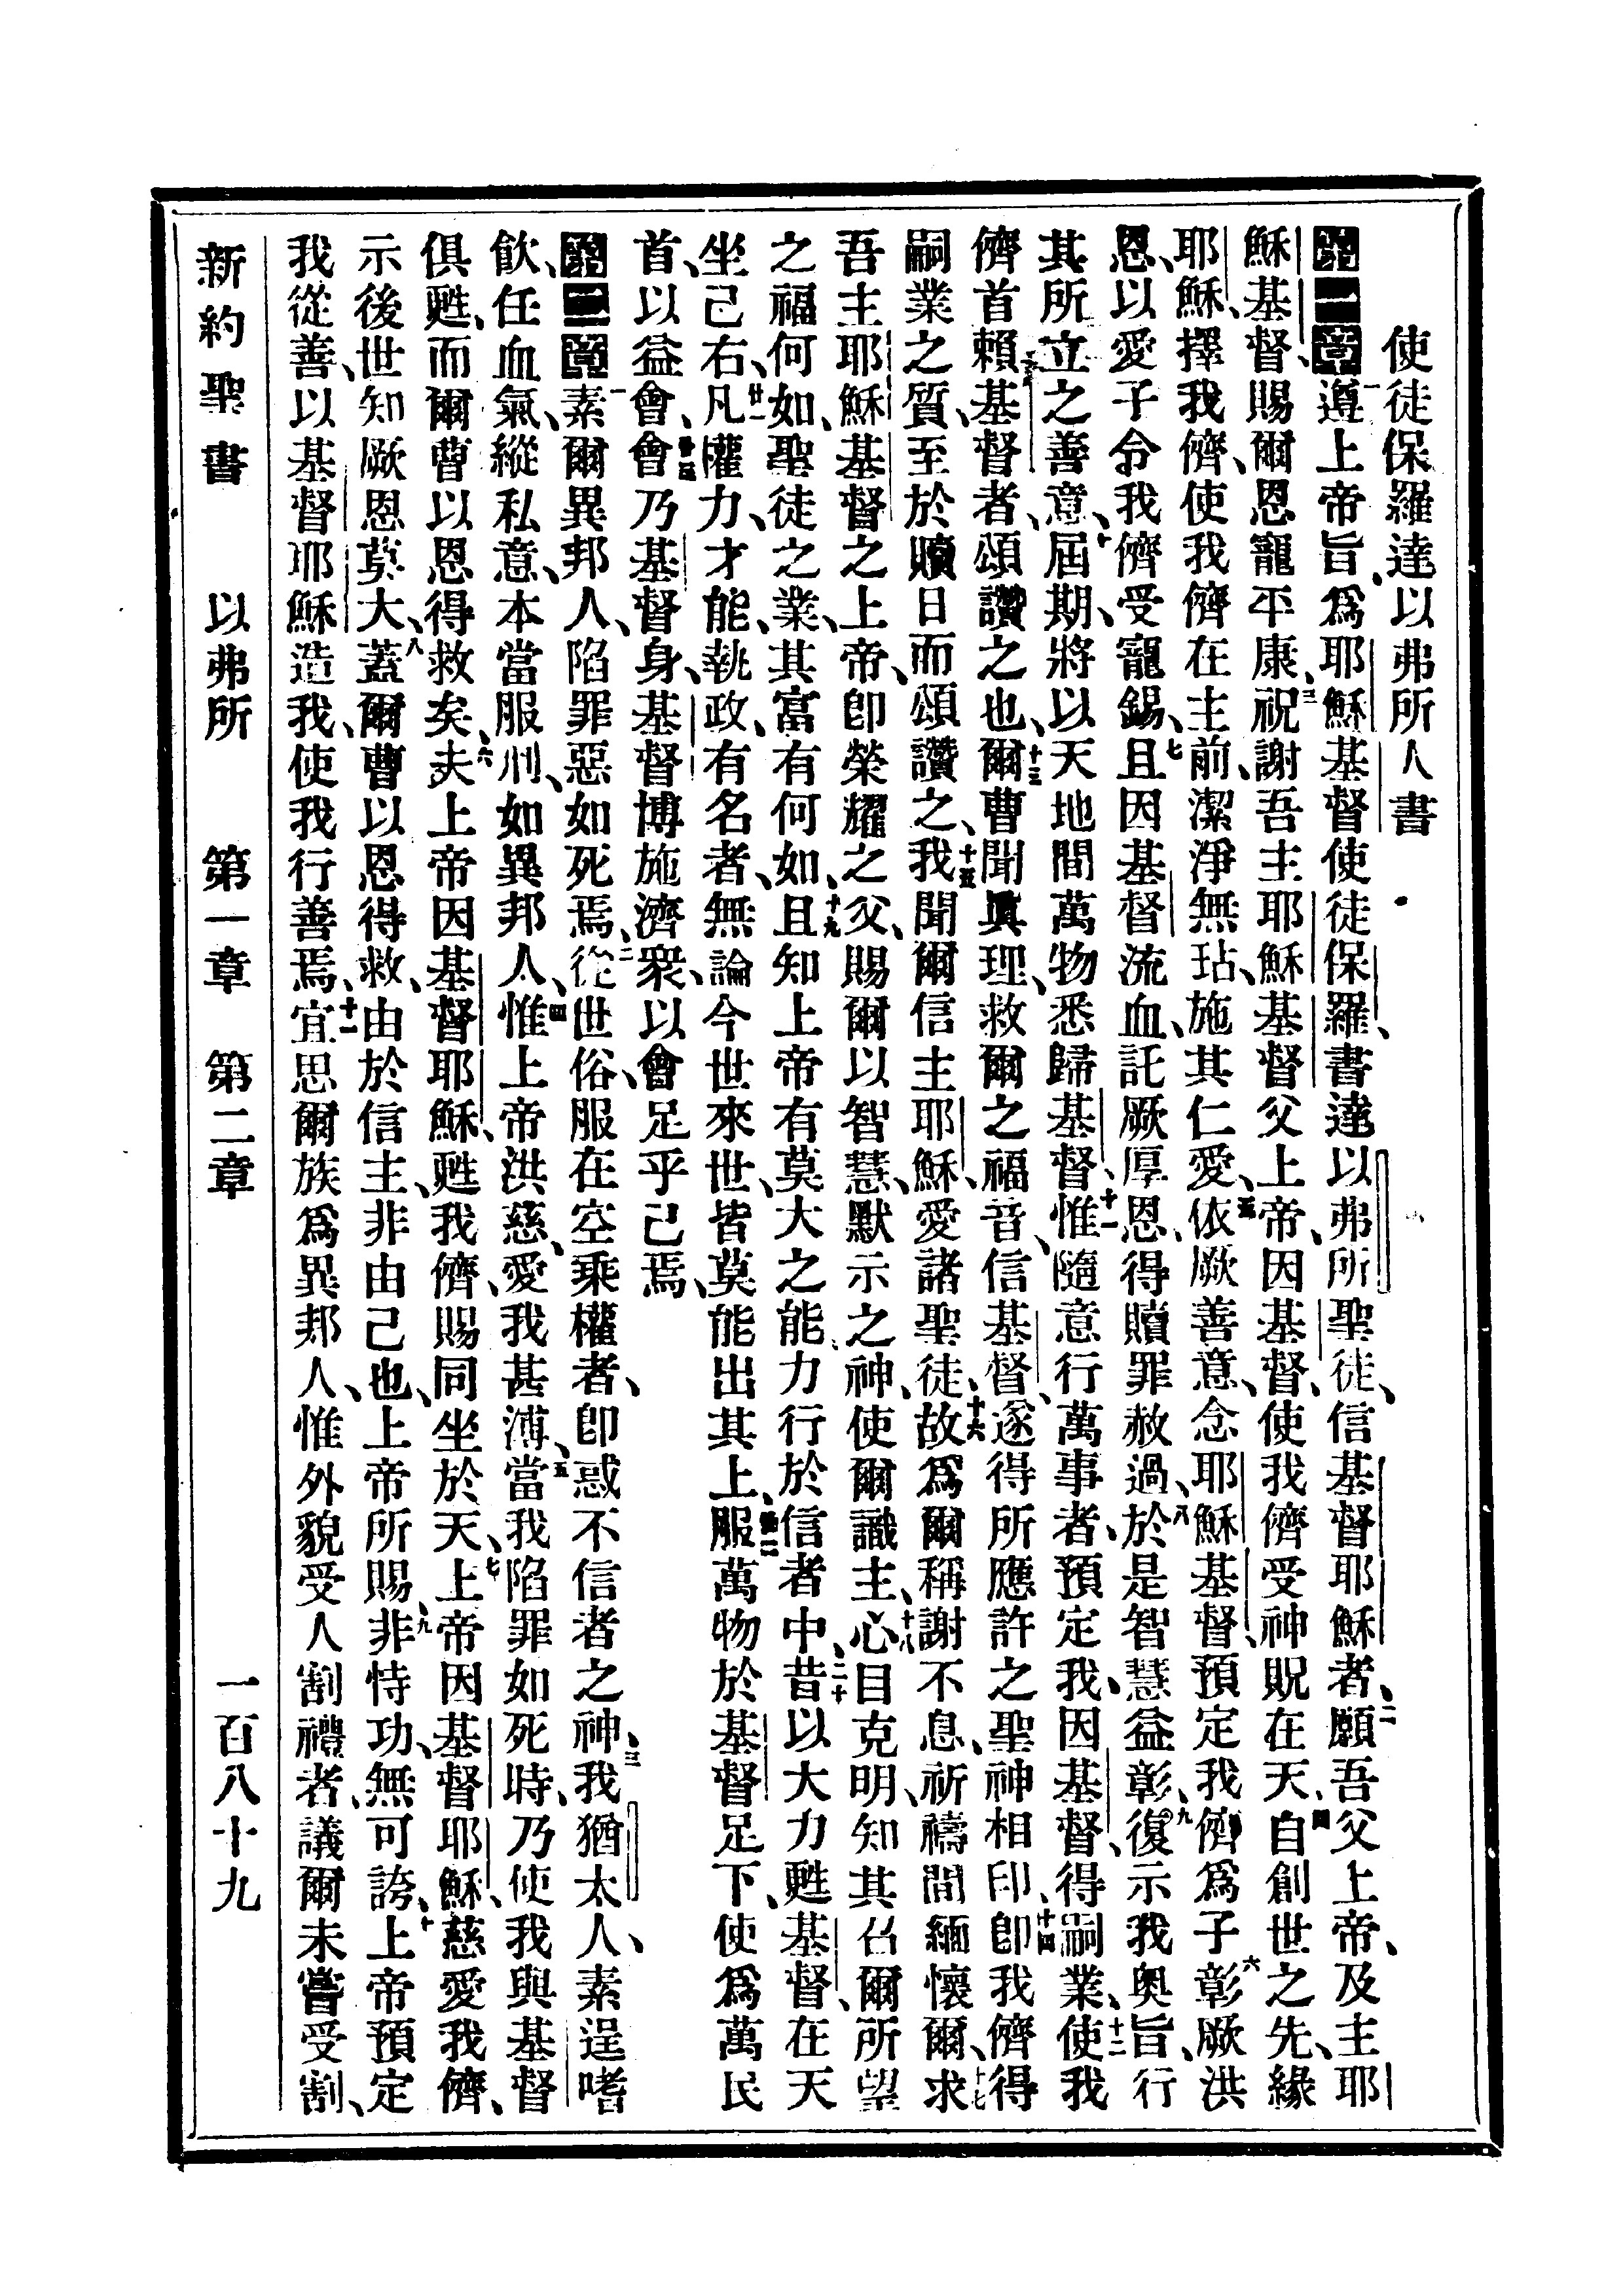 使徒保羅達以弗所人書
第一章一遵上帝旨、爲耶穌基督使徒保羅、書達以弗所聖徒、信基督耶穌者、二願吾父上帝、及主耶
穌基督、賜爾恩寵平康、三祝謝吾主耶穌基督父上帝、因基督、使我儕受神貺在天、四自創世之先、緣
耶穌、擇我儕、使我儕在主前、潔淨無玷、施其仁愛、五依厥善意、念耶穌基督、預定我儕爲子、六彰厥洪
恩、以愛子令我儕受寵錫、七且因基督流血、託厥厚恩、得贖罪赦過、八於是智慧益彰、九復示我奧旨、行
其所立之善意、十屆期、將以天地間萬物悉歸基督、十一惟隨意行萬事者、預定我、因基督、得嗣業、十二使我
儕首賴基督者、頌讚之也、十三爾曹聞眞理、救爾之福音、信基督、遂得所應許之聖神相印、十四卽我儕得
嗣業之質、至於贖日而頌讚之、十五我聞爾信主耶穌、愛諸聖徒、十六故爲爾稱謝不息、祈禱間緬懷爾、十七求
吾主耶穌基督之上帝、卽榮耀之父、賜爾以智慧、默示之神、使爾識主、十八心目克明、知其召爾所望
之福何如、聖徒之業、其富有何如、十九且知上帝有莫大之能力、行於信者中、二十昔以大力甦基督、在天
坐己右、廿一凡權力、才能、執政、有名者、無論今世來世、皆莫能出其上、廿二服萬物於基督足下、使爲萬民
首、以益會、廿三會乃基督身、基督博施濟衆、以會足乎己焉、
第二章一素爾異邦人、陷罪惡如死焉、二從世俗、服在空乘權者、卽惑不信者之神、三我猶太人、素逞嗜
飲、任血氣、縱私意、本當服刑、如異邦人、四惟上帝洪慈、愛我甚溥、五當我陷罪如死時、乃使我與基督
俱甦、而爾曹以恩得救矣、六夫上帝因基督耶穌、甦我儕、賜同坐於天、七上帝因基督耶穌、慈愛我儕、
示後世知厥恩莫大、八蓋爾曹以恩得救、由於信主、非由己也、上帝所賜、九非恃功、無可誇、十上帝預定
我從善、以基督耶穌造我、使我行善焉、十一宜思爾族爲異邦人、惟外貌受人割禮者、議爾未嘗受割、
新約聖書 以弗所 第一章 第二章 一百八十九